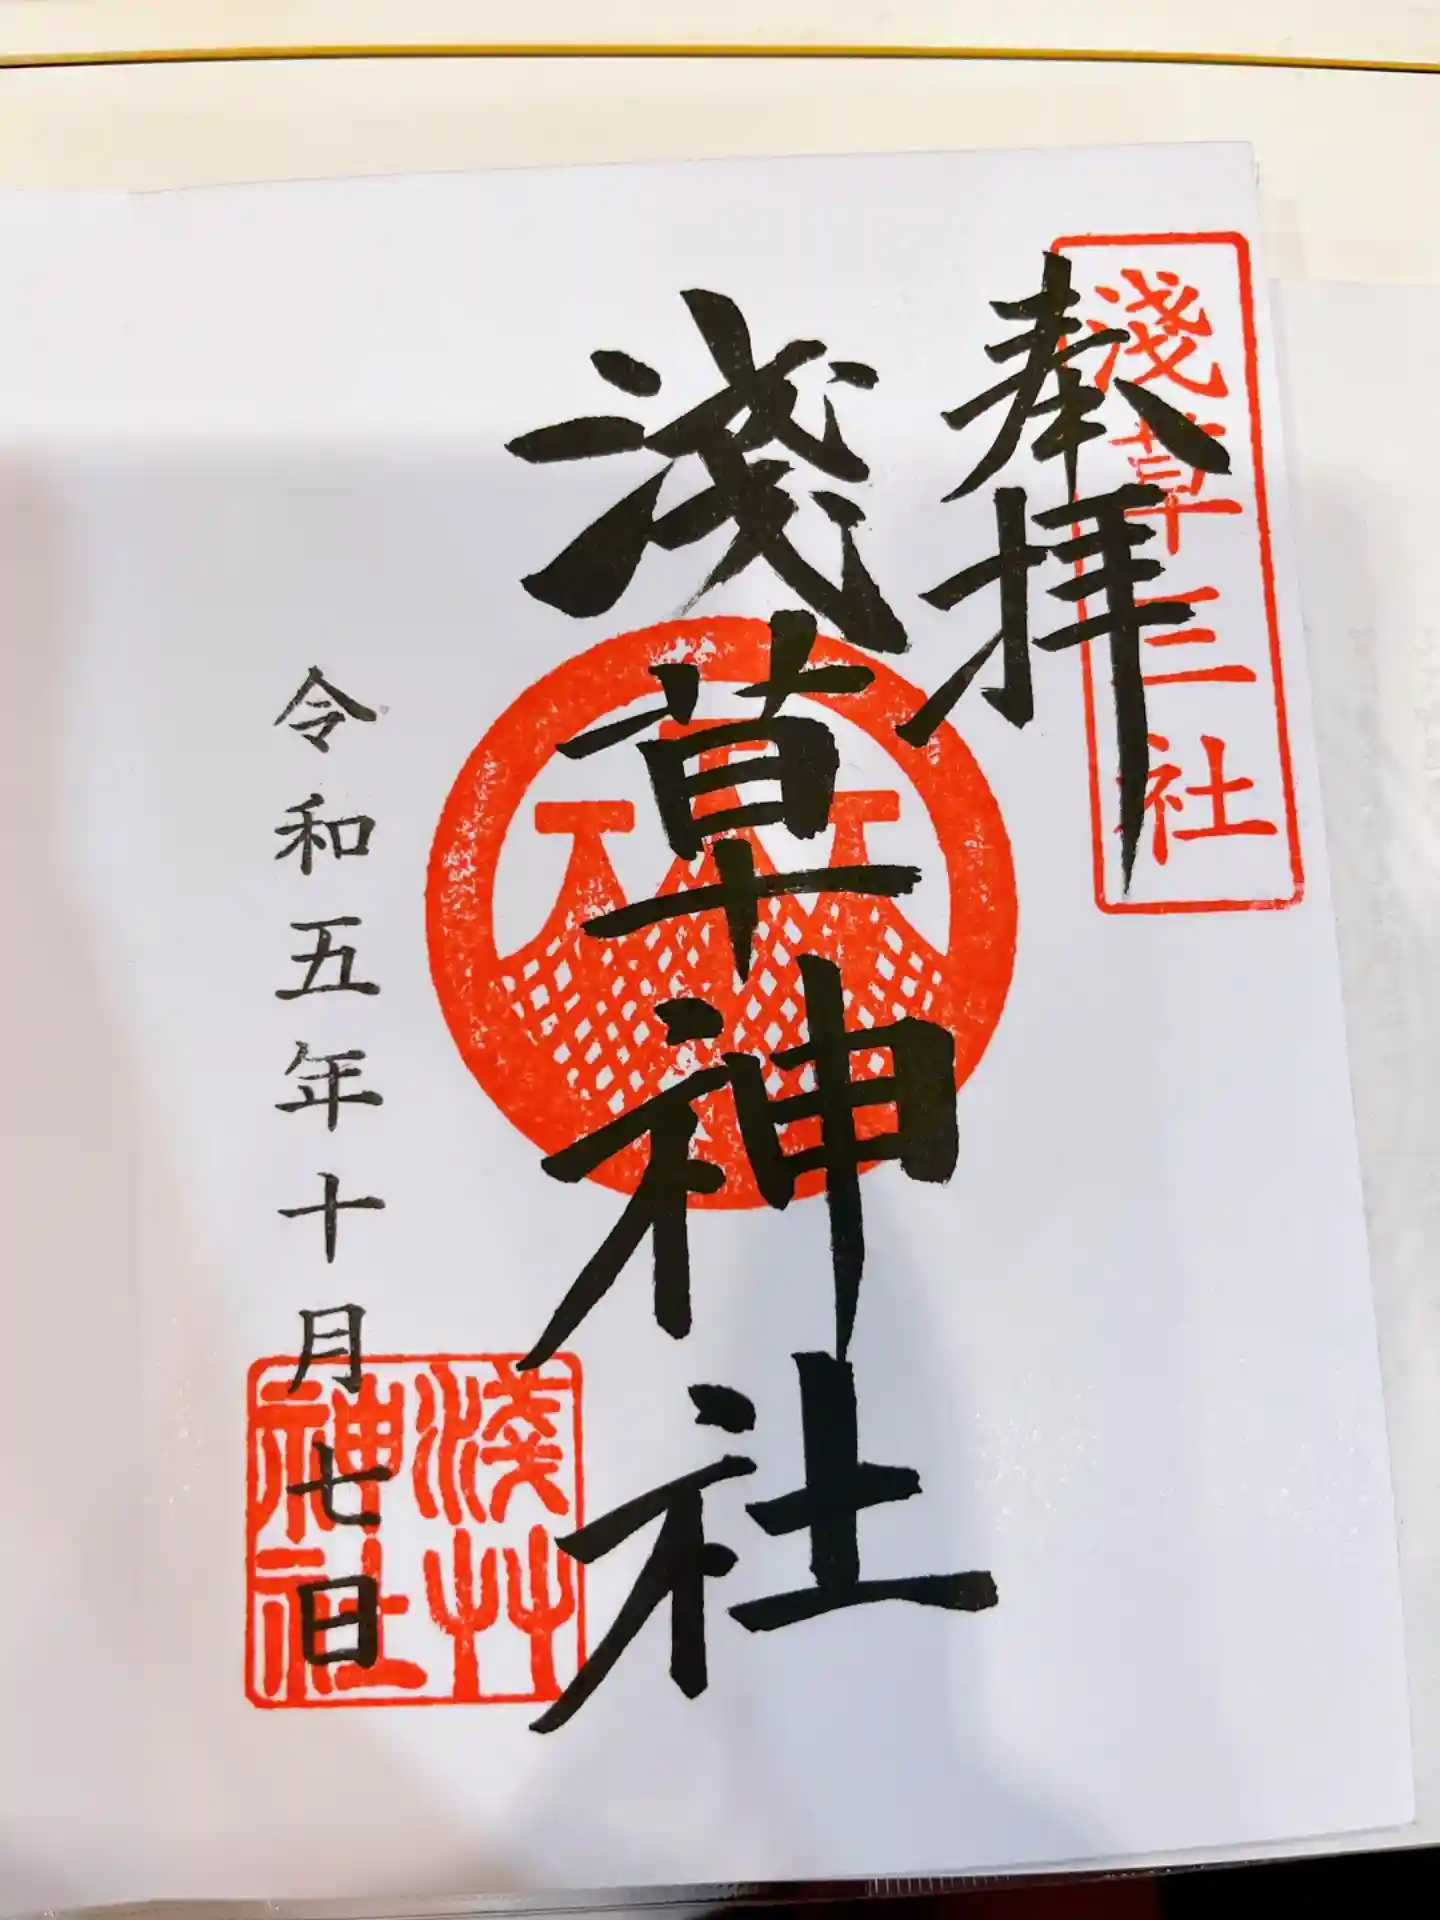 淺草三社
奉拝
淺草神社
令和五年十月七日
淺草
神社